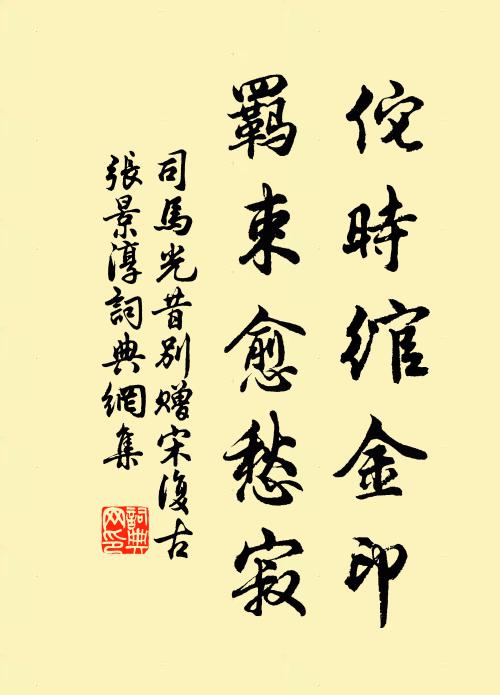 佗時綰金印
羈束愈愁寂
司馬光昔別贈宋復古
張景淳詞典網集
詞典網印